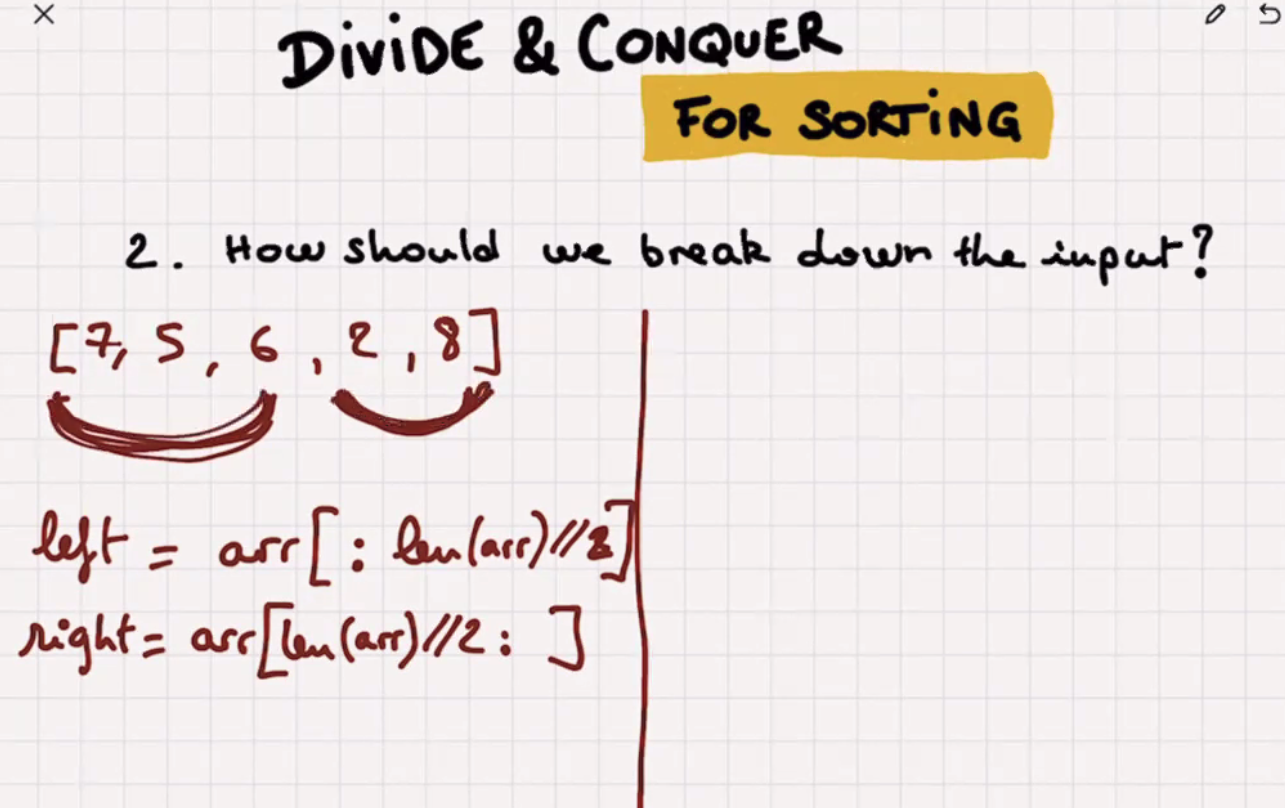 DiViDE & CONQUER
FOR SORTiNG
2. How should we break down the input?
[7, 5, 6, 2, 8]
left = arr[: len(arr)//2]
right = arr[len(arr)//2: ]